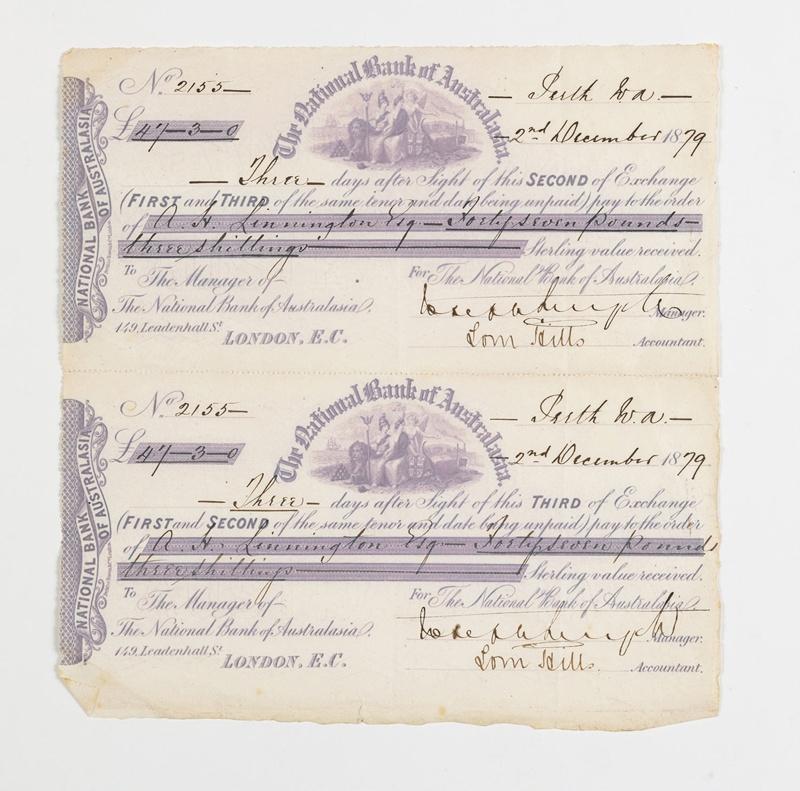 NATIONAL BANK
OF AUSTRALASIA
The National Bank of Australasia.
No. 2155 — — Perth Wa. —
£47—3—0 — 2nd December 1879
— Three — days after Sight of this SECOND of Exchange
(FIRST and THIRD of the same tenor and date being unpaid) pay to the order
of A. H. Linnington Esq — Forty seven pounds —
three shillings Sterling value received.
To The Manager of For The National Bank of Australasia.
The National Bank of Australasia. Manager.
149, Leadenhall St.
LONDON, E.C. Lorn Hills Accountant.
NATIONAL BANK
OF AUSTRALASIA
The National Bank of Australasia.
No. 2155 — — Perth Wa. —
£47—3—0 — 2nd December 1879
— Three — days after Sight of this THIRD of Exchange
(FIRST and SECOND of the same tenor and date being unpaid) pay to the order
of A. H. Linnington Esq — Forty seven pounds
three shillings Sterling value received.
To The Manager of For The National Bank of Australasia.
The National Bank of Australasia. Manager.
149, Leadenhall St.
LONDON, E.C. Lorn Hills. Accountant.